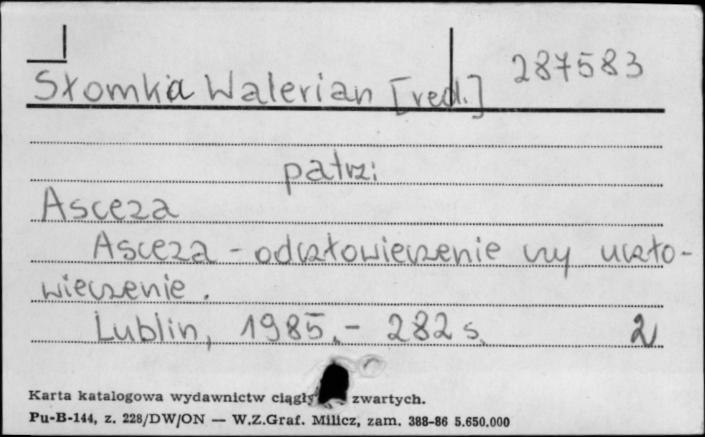 Słomka Walerian [red.] 287583
patrz:
Asceza
Asceza - odczłowieczenie czy uczło-
wieczenie.
Lublin, 1985.- 282 s. 2
Karta katalogowa wydawnictw zwartych.
Pu-B-144, z. 228/DW/ON — W.Z.Graf. Milicz, zam. 388-86 5.650.000